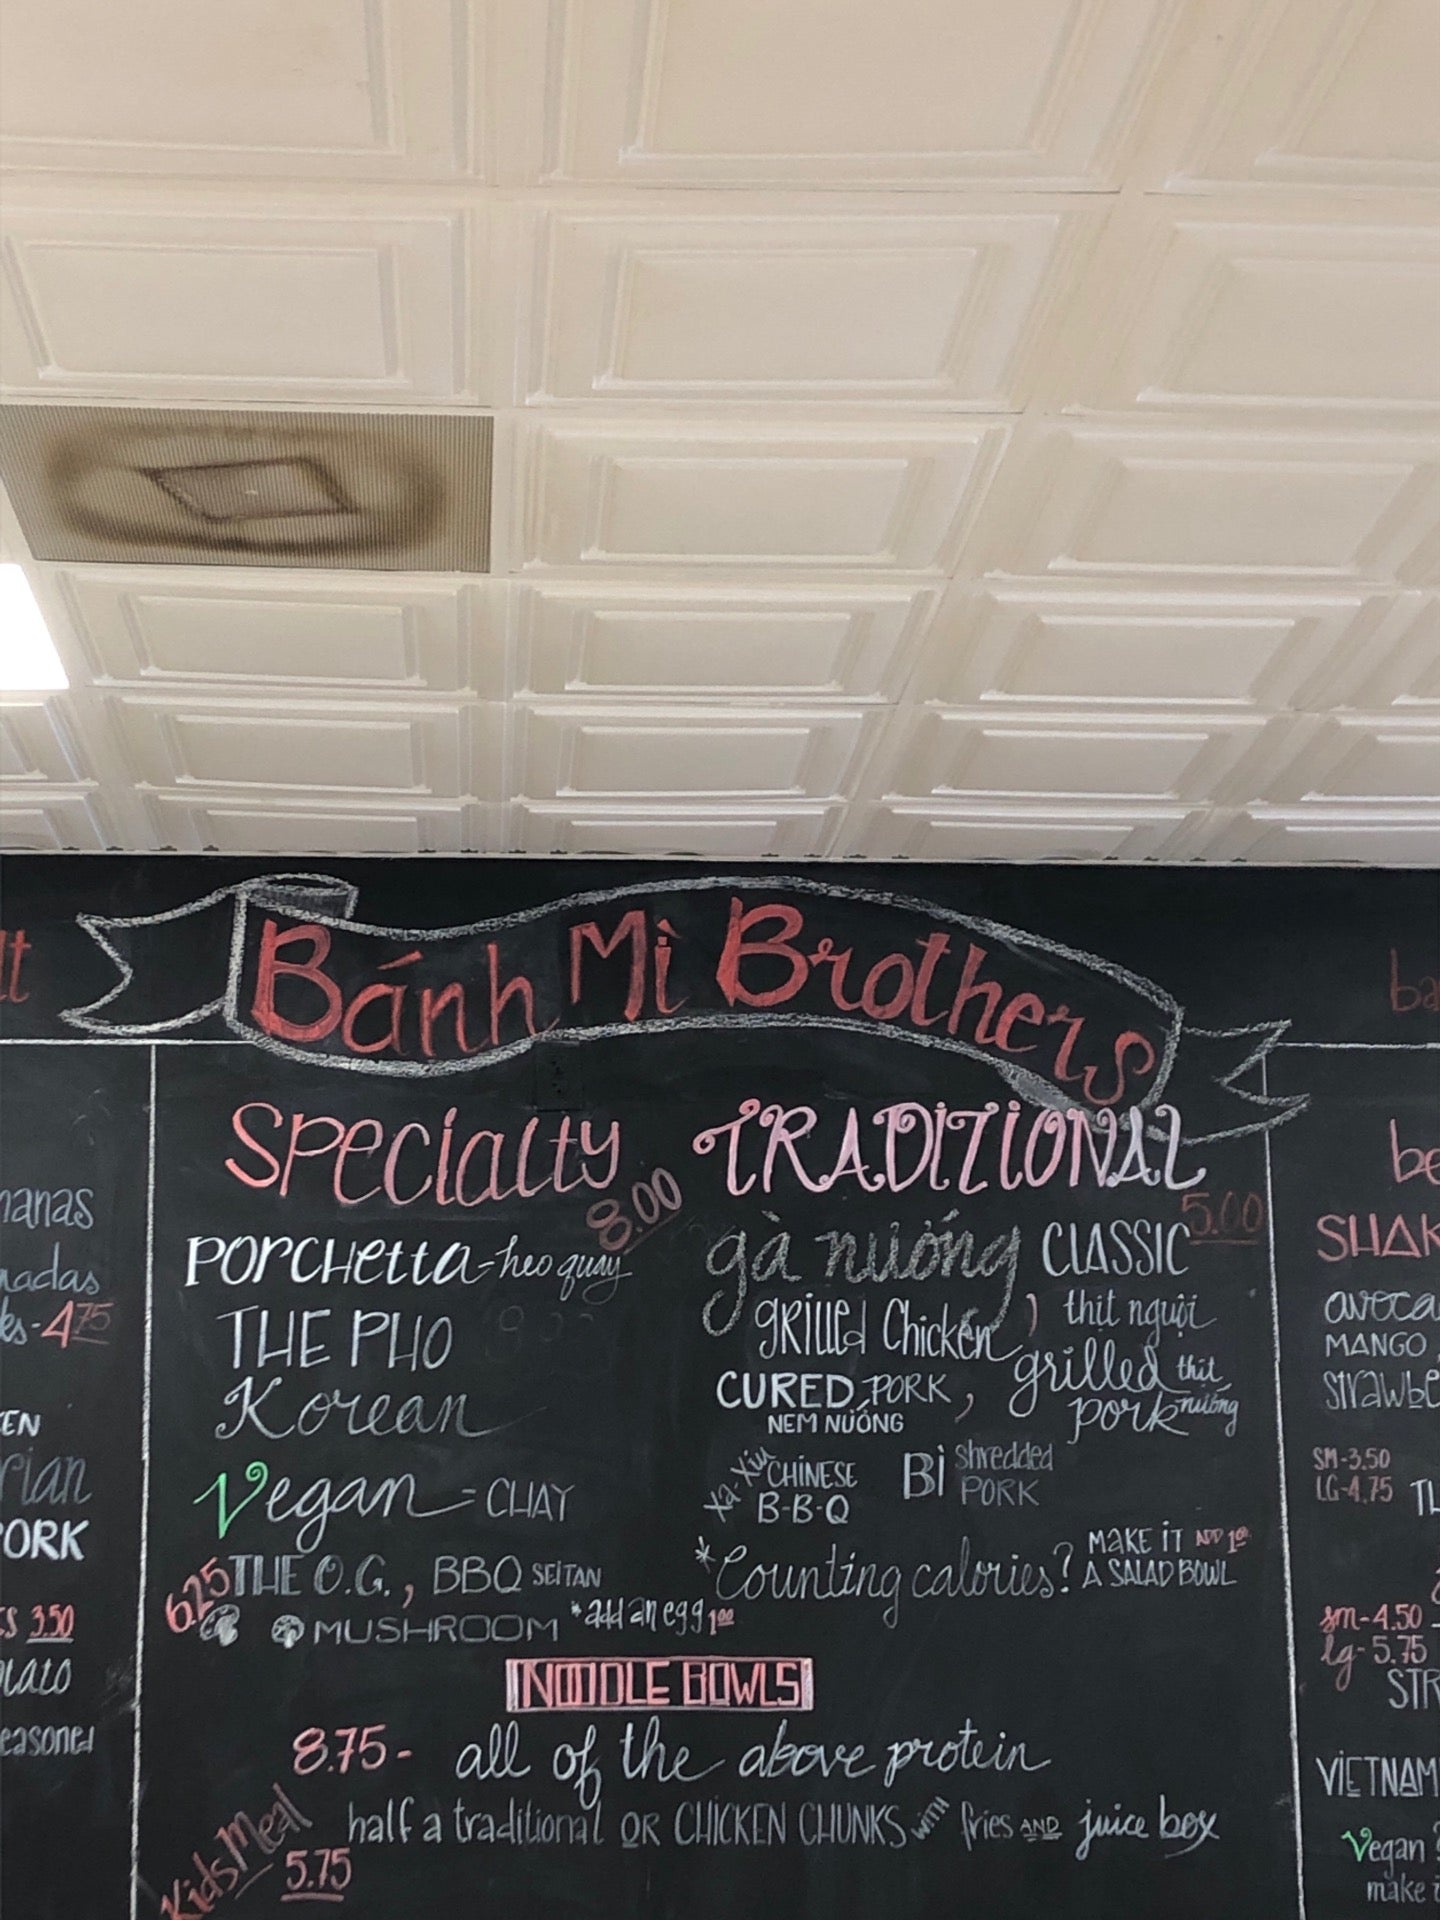 Bánh Mì Brothers
Specialty
8.00
PORCHETTA - heo quay
THE PHO
Korean
Vegan - CHAY
6.25
THE O.G., BBQ SEITAN
MUSHROOM *add an egg 1.00
TRADITIONAL
5.00
gà nướng CLASSIC
grilled Chicken, thịt nguội
CURED PORK, grilled thịt nướng
NEM NƯỚNG pork
Xa-Xiu CHINESE B-B-Q
Bì shredded PORK
*Counting calories? MAKE IT ADD 1.00
A SALAD BOWL
NOODLE BOWLS
8.75 - all of the above protein
Kids Meal
5.75
half a traditional OR CHICKEN CHUNKS WITH fries AND juice box
4.75
ORK
3.50
SM-3.50
LG-4.75
sm-4.50
lg-5.75
MANGO
Vegan
make